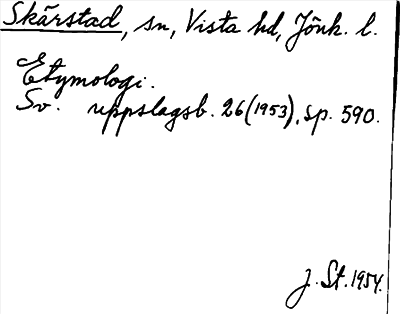 Skärstad, sn, Vista hd, Jönk. l.
Etymologi.
Sv. uppslagsb. 26(1953), sp. 590.
J. St. 1954.